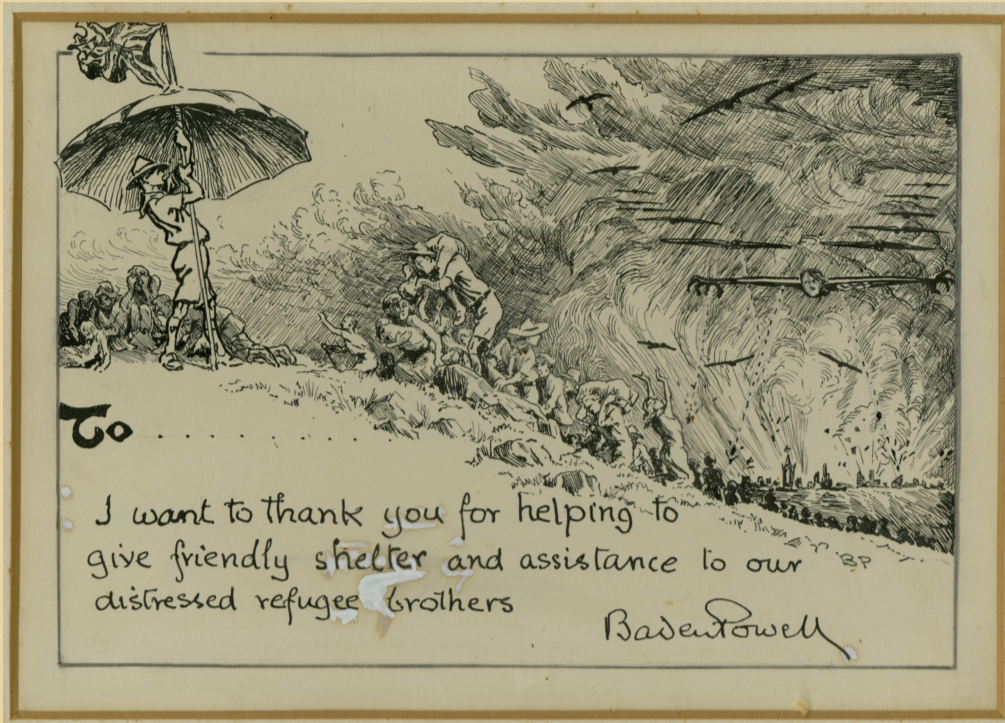 To . . . . . . . . . . . .
I want to thank you for helping to
give friendly shelter and assistance to our
distressed refugee brothers
BP
Baden Powell